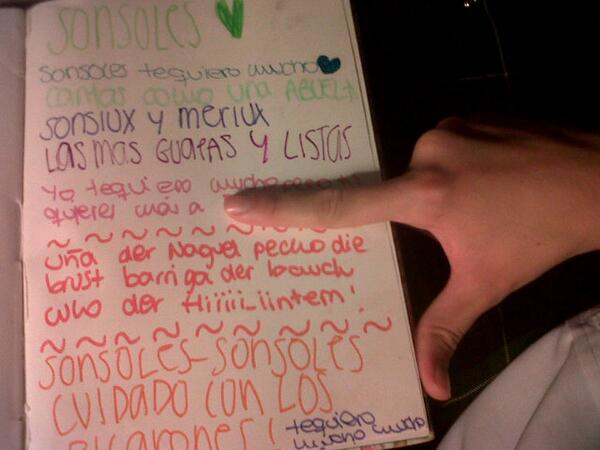 SONSOLES
sonsoles tequiero mucho
cantas como una ABUELA
SONSIUX Y MERIUX
LAS MAS GUAPAS Y LISTAS
Yo tequiero mucho
quieres más a
~ ~ ~ ~ ~ ~ ~ ~
uña der Nagel pecho die
brust barriga der bauch
culo der Hiiiii_iintern!
~ ~ ~ ~ ~ ~ ~ ~ ~
SONSOLES-SONSOLES
CUIDADO CON LOS
PICARONES!
tequiero
mucho mucho